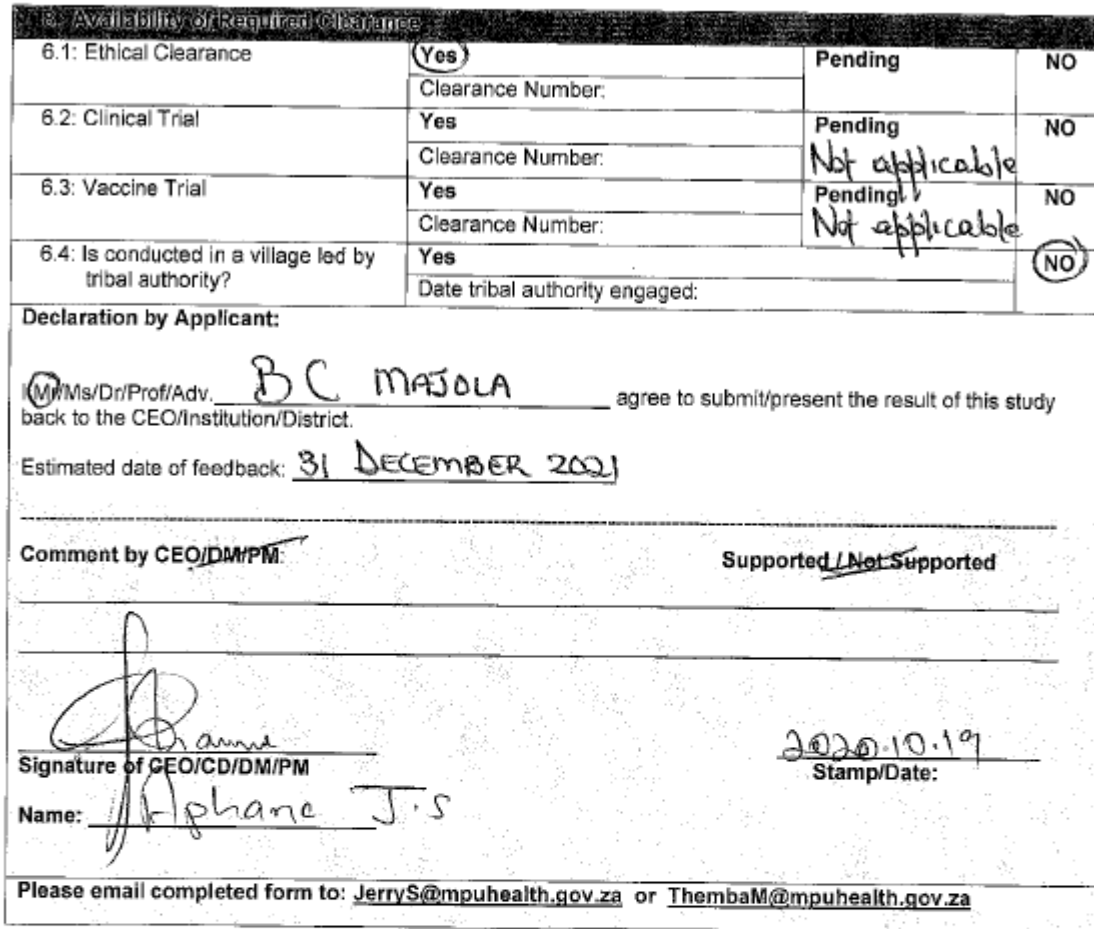 6. Availability of Required Clearance
6.1: Ethical Clearance Yes Pending NO
Clearance Number:
6.2: Clinical Trial Yes Pending NO
Clearance Number: Not applicable
6.3: Vaccine Trial Yes Pending NO
Clearance Number: Not applicable
6.4: Is conducted in a village led by Yes NO
tribal authority? Date tribal authority engaged:
Declaration by Applicant:
I Mr/Ms/Dr/Prof/Adv. B C MAJOLA agree to submit/present the result of this study
back to the CEO/Institution/District.
Estimated date of feedback: 31 DECEMBER 2021
Comment by CEO/DM/PM: Supported / Not Supported
2020.10.19
Signature of CEO/CD/DM/PM Stamp/Date:
Name: Aphane J.S
Please email completed form to: JerryS@mpuhealth.gov.za or ThembaM@mpuhealth.gov.za